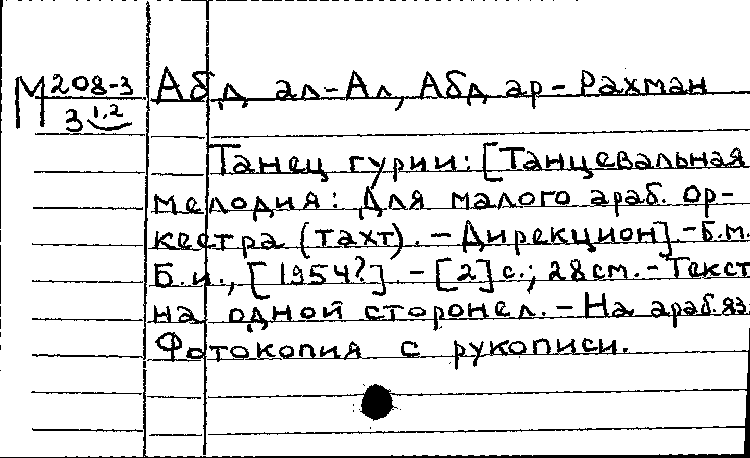 М 208-3 Абд ал-Ал, Абд ар-Рахман
3 1,2
Танец гурии: [Танцевальная
мелодия: Для малого араб. ор-
кестра (тахт). - Дирекцион]. - Б.м.
Б.и., [1954?]. - [2] с.; 28 см. - Текст
на одной сторонел. - На араб. яз.
Фотокопия с рукописи.